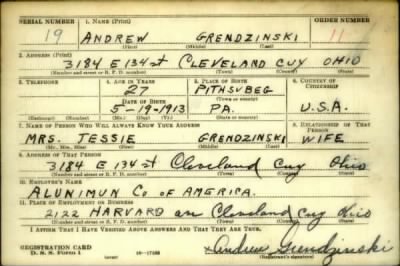 SERIAL NUMBER 1. NAME (Print) ORDER NUMBER
19 ANDREW GRENDZINSKI 11
(First) (Middle) (Last)
2. ADDRESS (Print)
3184 E 134 st CLEVELAND CUY OHIO
(Number and street or R. F. D. number) (Town) (County) (State)
3. TELEPHONE 4. AGE IN YEARS 5. PLACE OF BIRTH 6. COUNTRY OF CITIZENSHIP
27 PITHSUBEG
DATE OF BIRTH (Town or county)
5-19-1913 PA. U.S.A.
(Exchange) (Number) (Mo.) (Day) (Yr.) (State or country)
7. NAME OF PERSON WHO WILL ALWAYS KNOW YOUR ADDRESS 8. RELATIONSHIP OF THAT PERSON
MRS. JESSIE GRENDZINSKI WIFE
(Mr., Mrs., Miss) (First) (Middle) (Last)
9. ADDRESS OF THAT PERSON
3184 E 134 st Cleveland Cuy Ohio
(Number and street or R. F. D. number) (Town) (County) (State)
10. EMPLOYER'S NAME
ALUNIMUN Co OF AMERICA.
11. PLACE OF EMPLOYMENT OR BUSINESS
2122 HARVARD ave Cleveland Cuy Ohio
(Number and street or R. F. D. number) (Town) (County) (State)
I AFFIRM THAT I HAVE VERIFIED ABOVE ANSWERS AND THAT THEY ARE TRUE.
REGISTRATION CARD
D. S. S. FORM 1 16-17105 Andrew Grendzinski
(Registrant's signature)